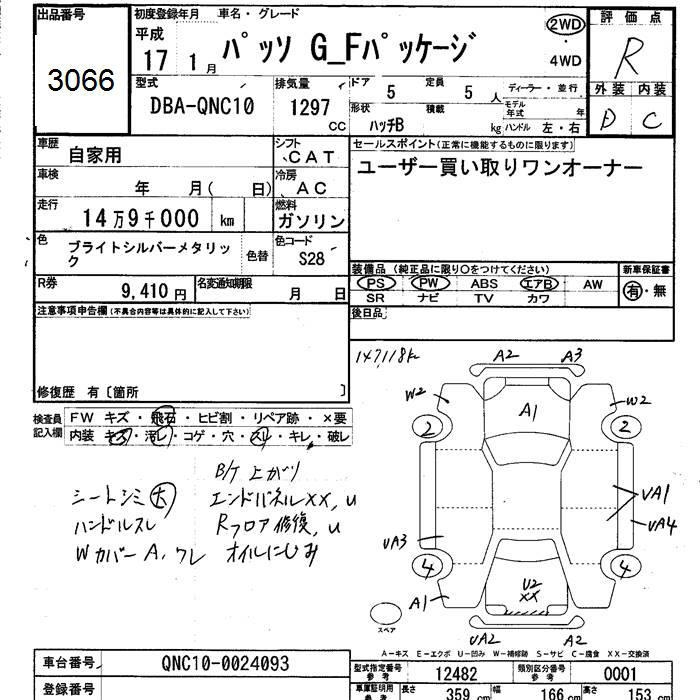 出品番号
3066
初度登録年月 車名・グレード
平成
17 1月 パッソ G_Fパッケージ
2WD
4WD
評価点
R
外装 内装
D C
型式
DBA-QNC10
排気量
1297 CC
ドア 5 定員 5人
ディーラー・並行
形状 ハッチB 積載 kg
モデル年式 年
ハンドル 左・右
車歴 自家用
シフト CAT
車検 年 月( 日)
冷房 AC
走行 14万9千000 km
燃料 ガソリン
色 ブライトシルバーメタリック
色替
色コード S28
R券 9,410円
名変通知期限 月 日
セールスポイント(正常に機能するものに限ります)
ユーザー買い取りワンオーナー
装備品(純正品に限り○をつけてください)
PS PW ABS エアB AW
SR ナビ TV カワ
新車保証書
有・無
後日品
注意事項申告欄(不具合内容等は具体的に記入して下さい)
修復歴 有〔箇所 〕
検査員記入欄
FW キズ・飛石・ヒビ割・リペア跡・×要
内装 キズ・汚レ・コゲ・穴・スレ・キレ・破レ
B/T 上がり
シートシミ大 エンドパネルXX,U
ハンドルスレ Rフロア修復,U
Wカバー A,ワレ オイルにじみ
147118k
A2 A3
W2 W2
A1
2 2
UA1
UA3 UA4
4 4
A1
U2
XX
スペア
UA2 A2
A−キズ E−エクボ U−凹み W−補修跡 S−サビ C−腐食 XX−交換済
車台番号 QNC10-0024093
登録番号
型式指定番号 参考 12482
類別区分番号 参考 0001
車庫証明用 参考 長さ 359 cm 幅 166 cm 高さ 153 cm